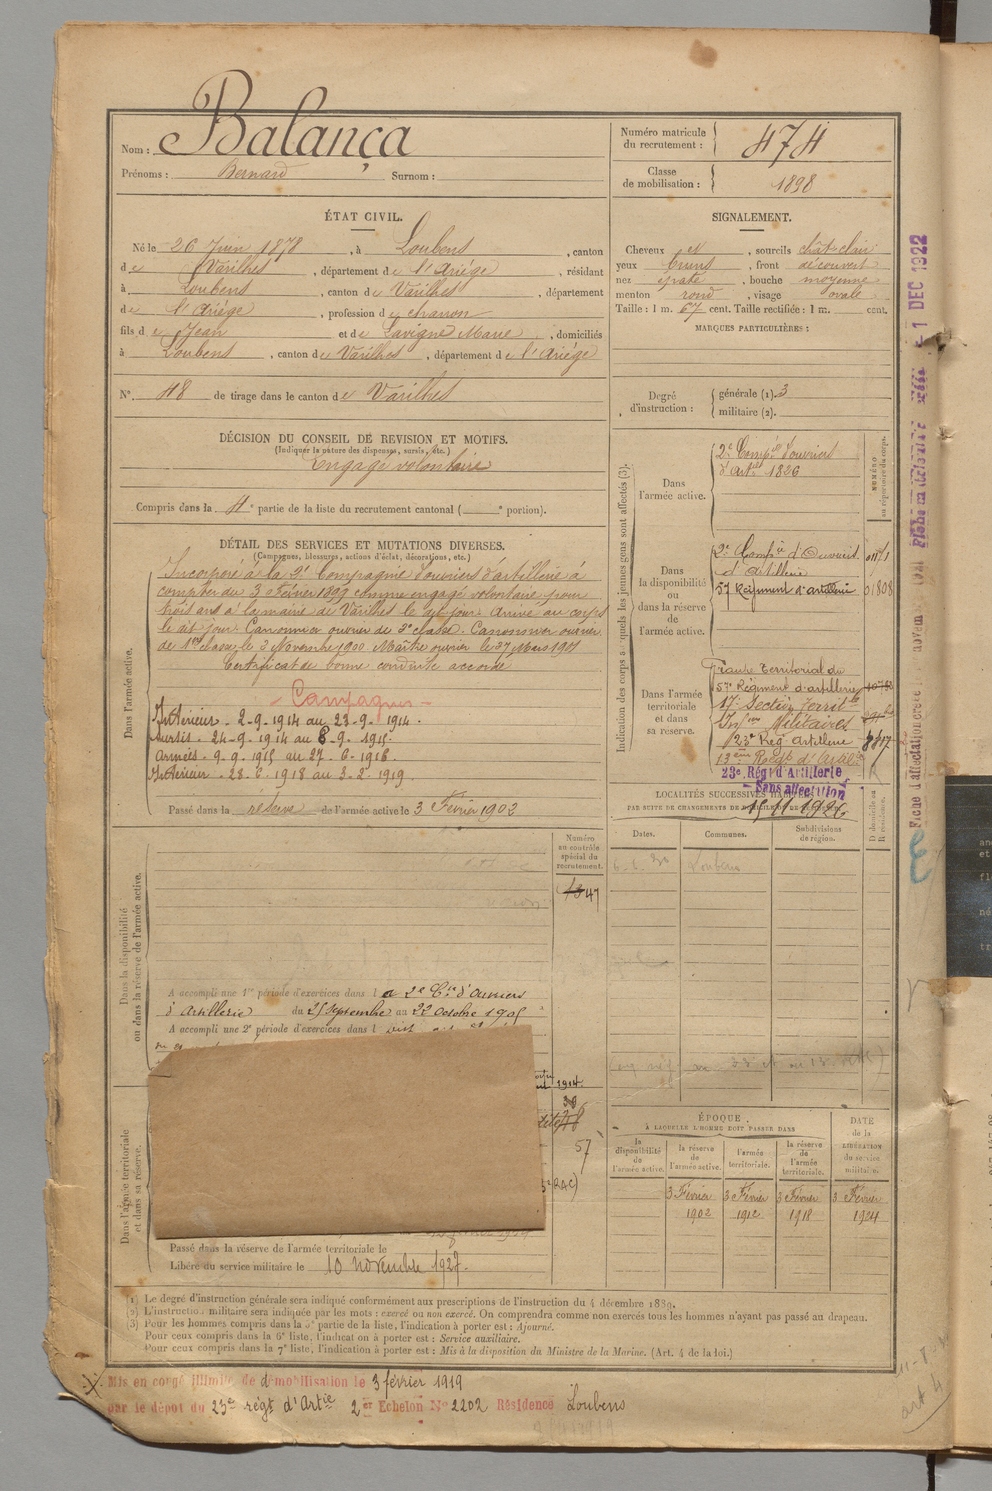 Nom : Balança
Prénoms : Bernard Surnom :
Numéro matricule du recrutement : 474
Classe de mobilisation : 1898
ÉTAT CIVIL.
Né le 26 Juin 1878, à Loubens, canton
de Varilhes, département de l'Ariège, résidant
à Loubens, canton de Varilhes, département
de l'Ariège, profession de charron
fils de Jean et de Lavigne Marie, domiciliés
à Loubens, canton de Varilhes, département de l'Ariège
N° 48 de tirage dans le canton de Varilhes
SIGNALEMENT.
Cheveux et, sourcils chât-clair
yeux bruns, front découvert
nez épaté, bouche moyenne
menton rond, visage ovale
Taille : 1 m. 67 cent. Taille rectifiée : 1 m. cent.
MARQUES PARTICULIÈRES :
Degré d'instruction : générale (1). 3
militaire (2).
DÉCISION DU CONSEIL DE REVISION ET MOTIFS.
(Indiquer la nature des dispenses, sursis, etc.)
Engagé volontaire
Compris dans la 4e partie de la liste du recrutement cantonal ( e portion).
DÉTAIL DES SERVICES ET MUTATIONS DIVERSES.
(Campagnes, blessures, actions d'éclat, décorations, etc.)
Dans l'armée active.
Incorporé à la 2e Compagnie d'ouvriers d'artillerie à
compter du 3 Février 1899 comme engagé volontaire pour
trois ans à la mairie de Varilhes le dit jour. Arrivé au corps
le dit jour. Canonnier ouvrier de 2e classe. Canonnier ouvrier
de 1ère classe le 3 Novembre 1900. Maître ouvrier le 27 Mars 1901
Certificat de bonne conduite accordé
Campagnes
Intérieur - 2-9-1914 au 23-9-1914.
Sursis - 24-9-1914 au 8-9-1915.
Armées - 9-9-1915 au 27-6-1918.
Intérieur - 28-6-1918 au 3-2-1919.
Passé dans la réserve de l'armée active le 3 Février 1902
Indication des corps auxquels les jeunes gens sont affectés (3).
NUMÉRO au répertoire du corps.
Dans l'armée active.
2e Compie d'ouvriers
d'Artie 1826
Dans la disponibilité ou dans la réserve de l'armée active.
2e Compie d'Ouvriers
d'Artillerie
57 Régiment d'artillerie 01808
Dans l'armée territoriale et dans sa réserve.
Groupe Territorial du
57e Régiment d'artillerie
17e Section Territ le
Infiers Militaires
23e Rég Artillerie 8817
13ème Régt d'Artie
23e Régt d'Artillerie
Sans affectation
15.1.1926
LOCALITÉS SUCCESSIVES HABITÉES
PAR SUITE DE CHANGEMENTS DE DOMICILE OU DE RÉSIDENCE.
D domicile ou R résidence.
Dates. Communes. Subdivisions de région.
Loubens
Numéro au contrôle spécial du recrutement.
47
Dans la disponibilité ou dans la réserve de l'armée active.
A accompli une 1re période d'exercices dans la 2e Cie d'Ouvriers
d'Artillerie du 25 Septembre au 22 Octobre 1905
A accompli une 2e période d'exercices dans l
1914
57
Dans l'armée territoriale et dans sa réserve.
Passé dans la réserve de l'armée territoriale le
Libéré du service militaire le 10 novembre 1927.
ÉPOQUE
À LAQUELLE L'HOMME DOIT PASSER DANS
la disponibilité de l'armée active.
la réserve de l'armée active.
l'armée territoriale.
la réserve de l'armée territoriale.
DATE de la LIBÉRATION du service militaire.
3 Février 3 Février 3 Février 3 Février
1902 1912 1918 1924
(1) Le degré d'instruction générale sera indiqué conformément aux prescriptions de l'instruction du 4 décembre 1889.
(2) L'instruction militaire sera indiquée par les mots : exercé ou non exercé. On comprendra comme non exercés tous les hommes n'ayant pas passé au drapeau.
(3) Pour les hommes compris dans la 5e partie de la liste, l'indication à porter est : Ajourné.
Pour ceux compris dans la 6e liste, l'indication à porter est : Service auxiliaire.
Pour ceux compris dans la 7e liste, l'indication à porter est : Mis à la disposition du Ministre de la Marine. (Art. 4 de la loi.)
Mis en congé illimité de démobilisation le 3 février 1919
par le dépôt du 23e régt d'Artie 2er Echelon N° 2202 Résidence Loubens
art 4
1 DEC 1922